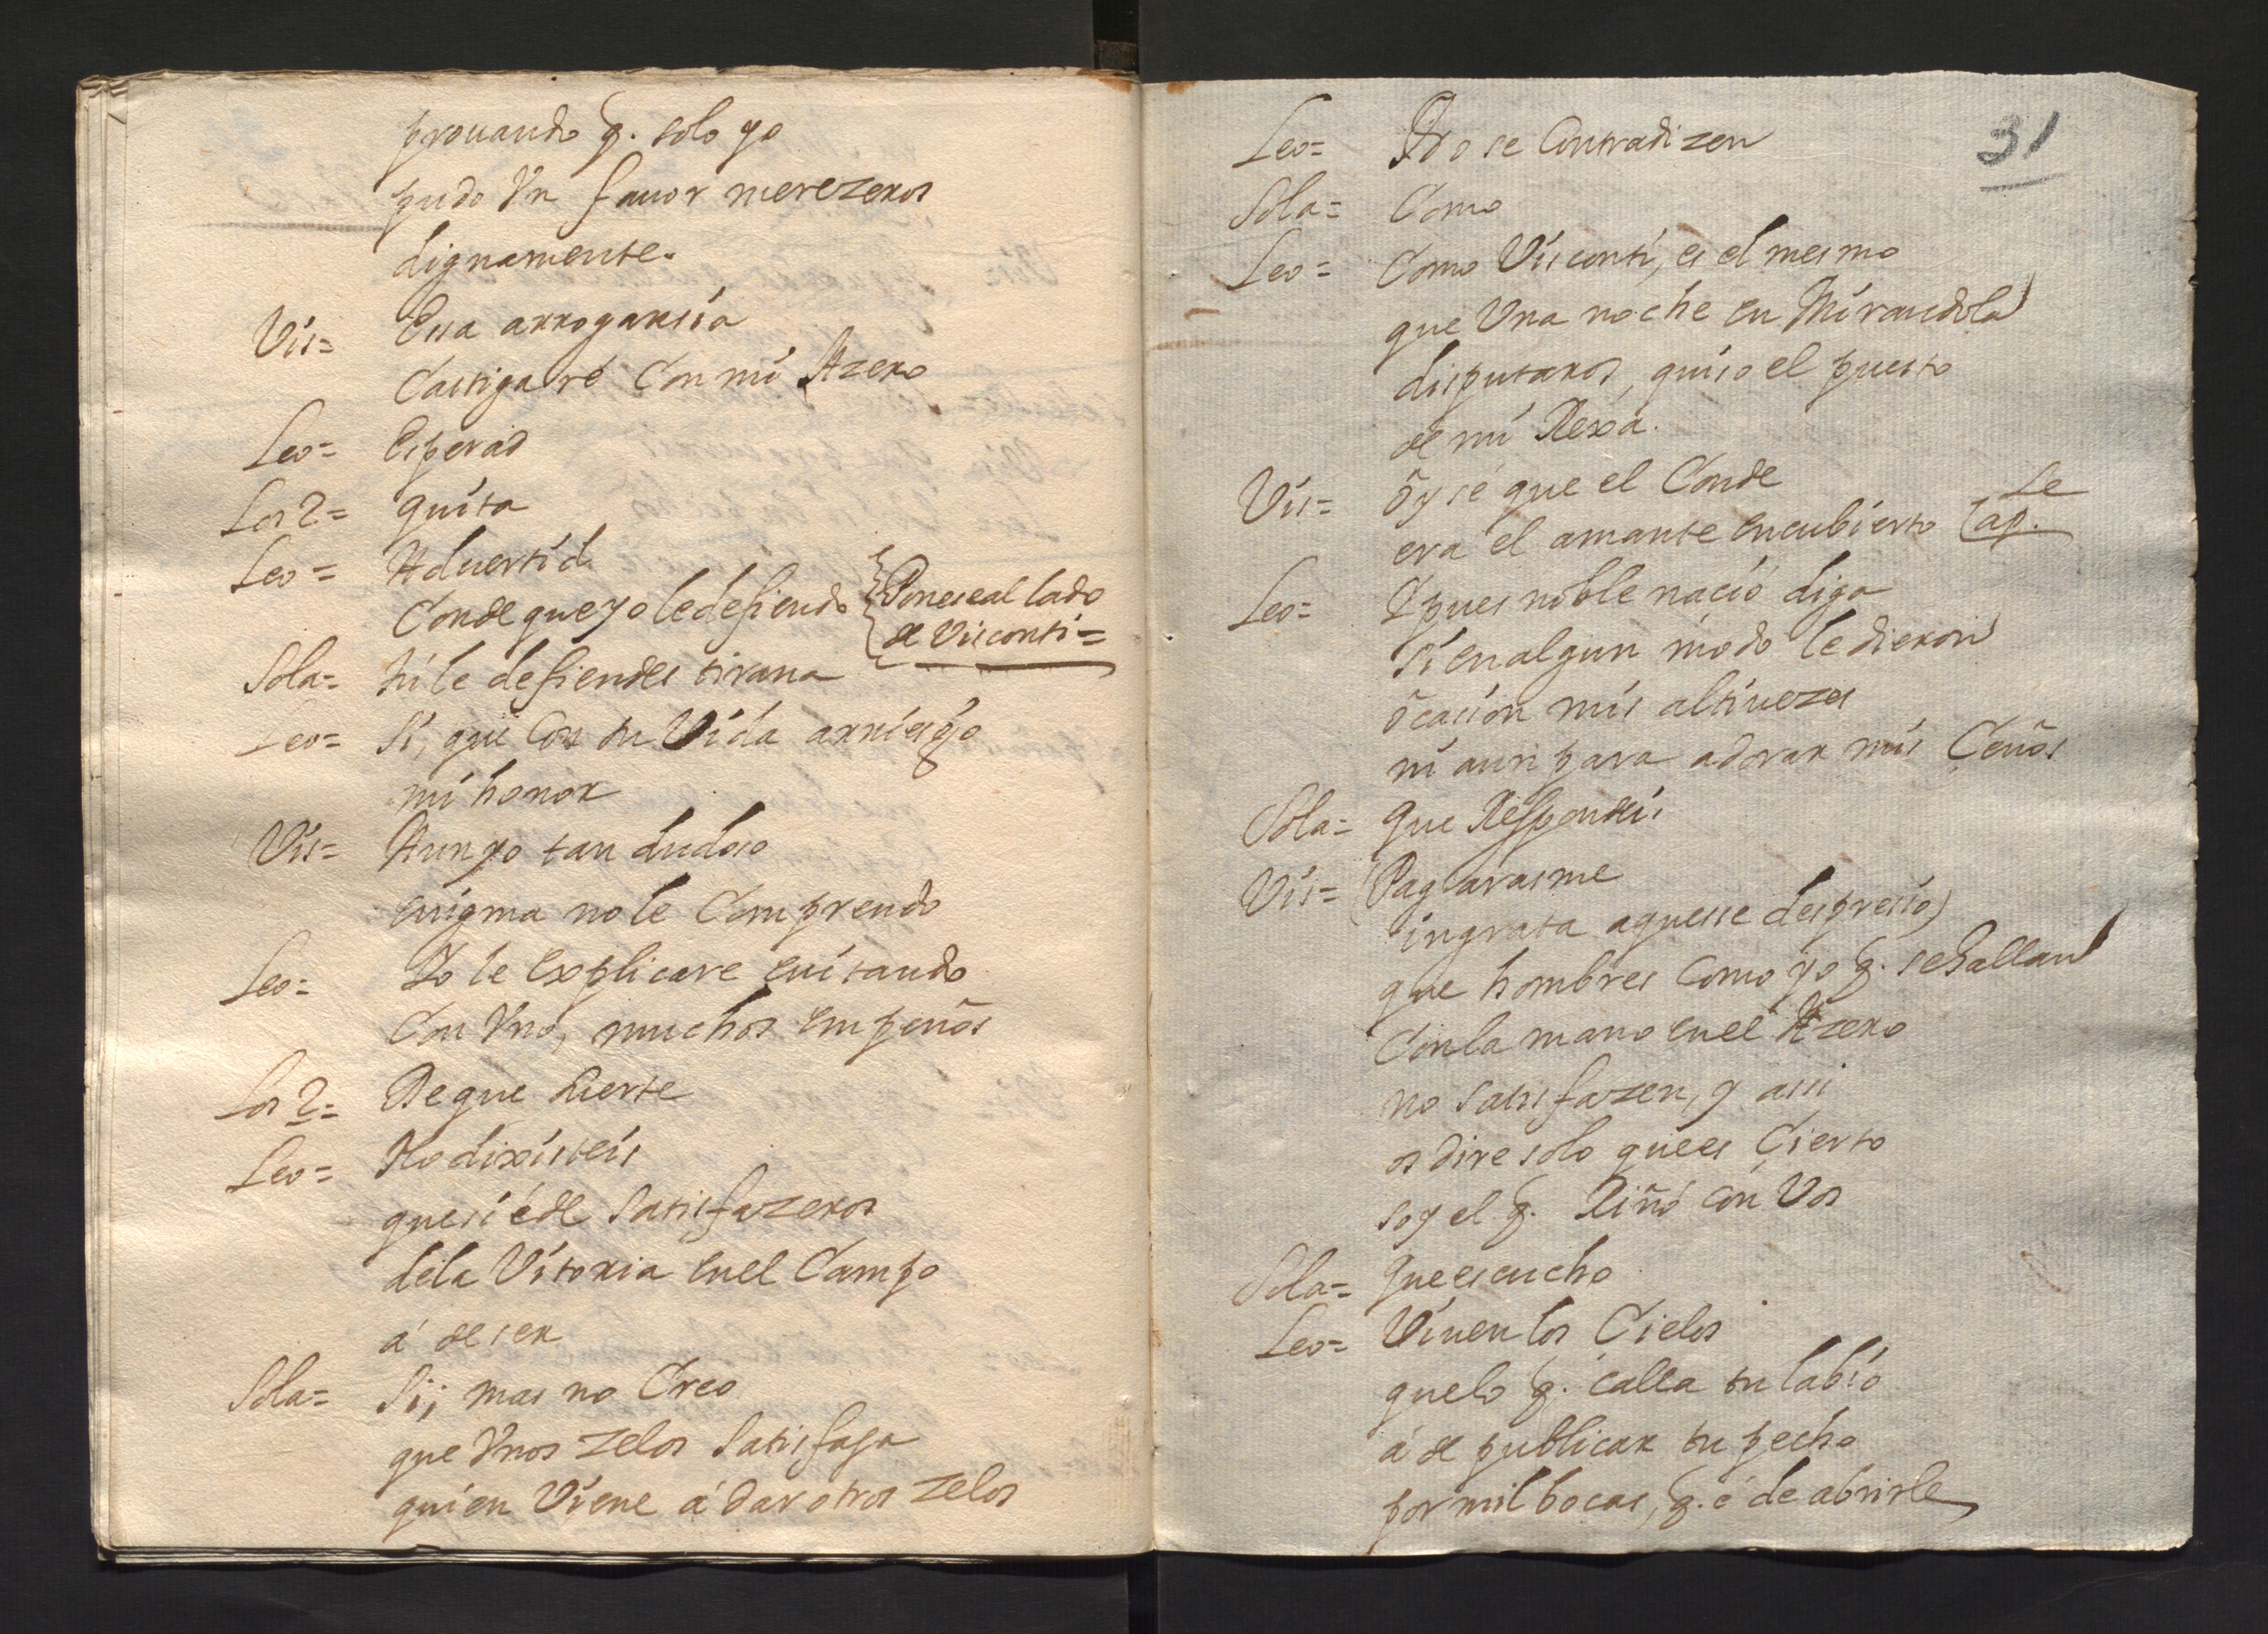 prouando q. solo yo
pudo Vn fauor merezeros
dignamente.
Vis= Essa arrogansia
Castigaré Con mi Azero
Leo= Esperad
Los 2= quita
Leo= Aduertid
Conde que yo le defiendo {Ponese al lado
de Visconti=
Sola= tú le defiendes tirana
Leo= Si, que Con tu Vida arriesgo
mi honor
Vis= Aun yo tan dudoso
enigma no le Comprendo
Leo= Yo le explicare euitando
Con Vno, muchos empeños
Los 2= De que suerte
Leo= No dixisteis
que si é de Satisfazeros
dela Vitoria enel Campo
á de ser
Sola= Si; mas no Creo
que Vnos zelos Satisfaga
quien Viene á dar otros zelos
31
Leo= No se Contradizen
Sola= Como
Leo= Como Visconti, es el mesmo
que Vna noche en Mirandola
disputaros, quiso el puesto
de mi Rexa.
Vis= oy sé que el Conde
era el amante encubierto (ap.
Le
Leo= Y pues noble nació diga
si en algun modo le dieron
ocasion mis altiuezes
ni aun para adorar mis Ceños
Sola= que Respondeis
Vis= (Pagarasme
ingrata aquesse despresio)
que hombres como yo q. se hallan
Con la mano en el Azero
no satisfazen, y assi
os dire solo que es Cierto
soy el q. Riñó con Vos
Sola= que escucho
Leo= Viuen los Cielos
que lo q. calla tu labio
á de publicar tu pecho
por mil bocas, q. é de abrirle